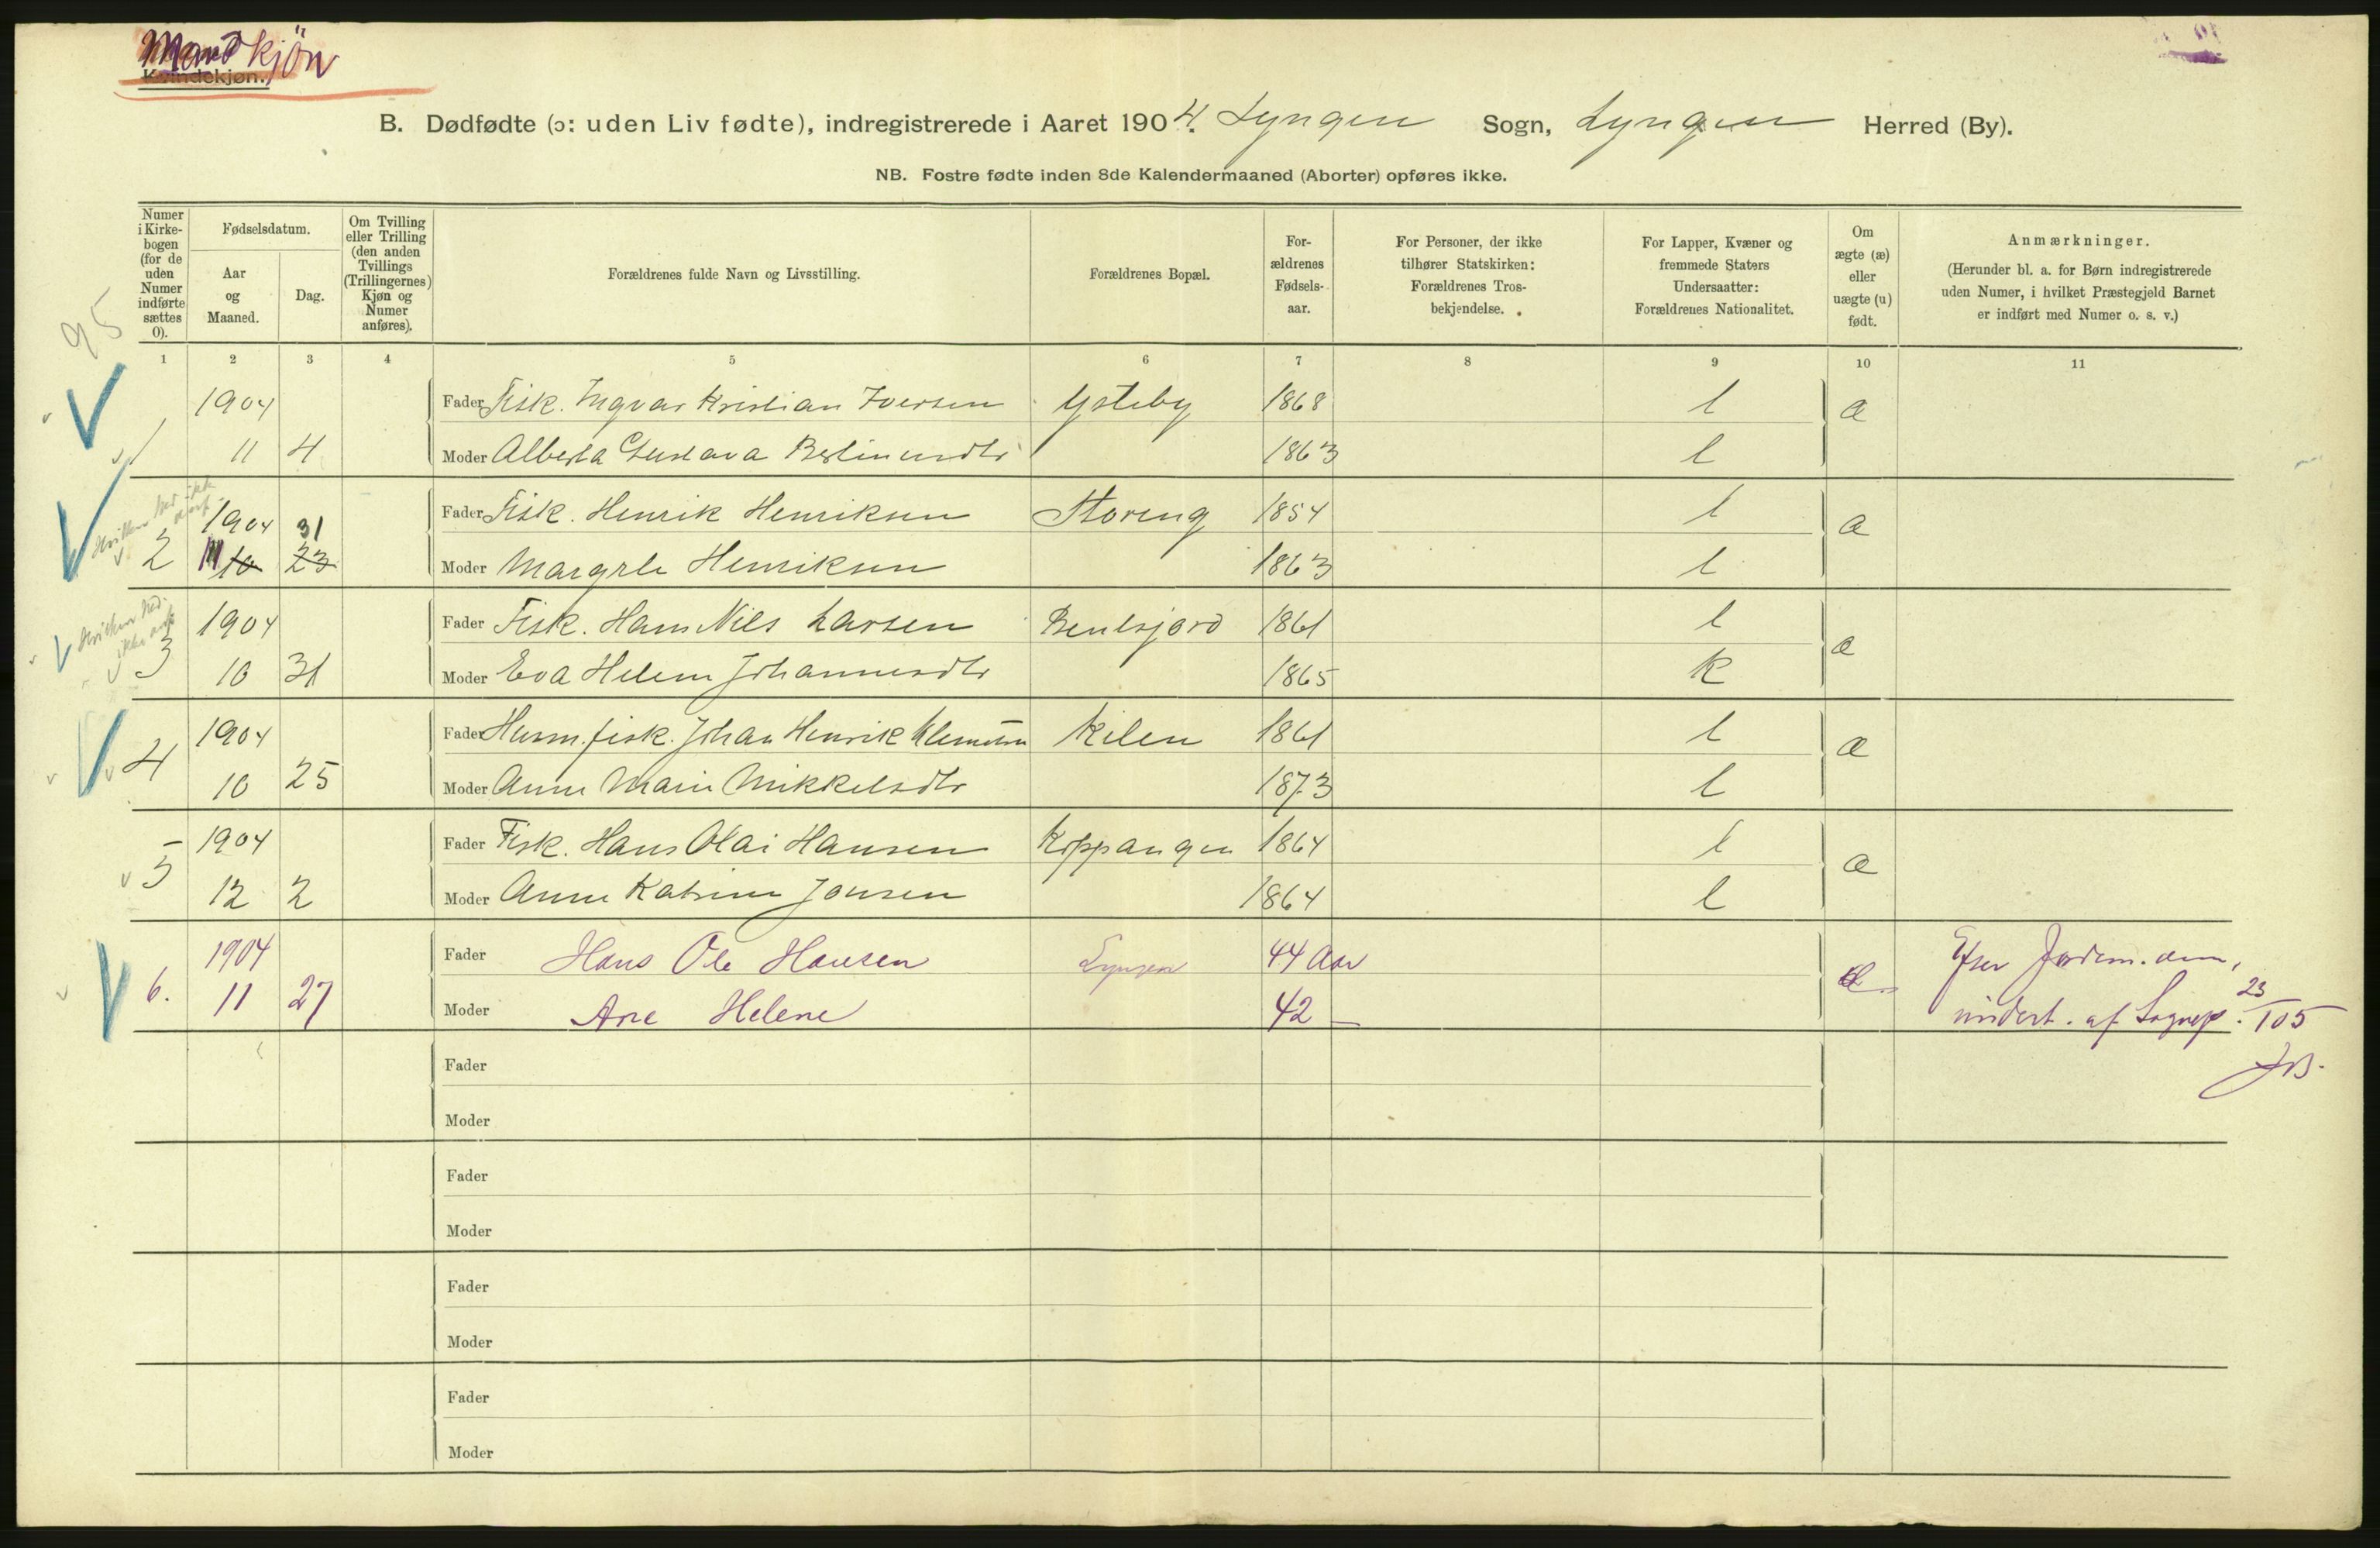 Mandkjön
Kvindekjøn.
B. Dødfødte (ɔ: uden Liv fødte), indregistrerede i Aaret 1904. Lyngen Sogn, Lyngen Herred (By).
NB. Fostre fødte inden 8de Kalendermaaned (Aborter) opføres ikke.
Numer i Kirke-bogen (for de uden Numer indførte sættes 0).
Fødselsdatum.
Aar og Maaned.
Dag.
Om Tvilling eller Trilling (den anden Tvillings (Trillingernes) Kjøn og Numer anføres).
Forældrenes fulde Navn og Livsstilling.
Forældrenes Bopæl.
For-ældrenes Fødsels-aar.
For Personer, der ikke tilhører Statskirken: Forældrenes Tros-bekjendelse.
For Lapper, Kvæner og fremmede Staters Undersaatter: Forældrenes Nationalitet.
Om ægte (æ) eller uægte (u) født.
Anmærkninger.
(Herunder bl. a. for Børn indregistrerede uden Numer, i hvilket Præstegjeld Barnet er indført med Numer o. s. v.)
95
1 2 3 4 5 6 7 8 9 10 11
1904 Fader Fisk. Ingvar Kristian Iversen Ysteby 1868 l æ
1 11 4 Moder Alberta Gustava Bertinusdtr 1863 l
1904 31 Fader Fisk. Henrik Henriksen Storeng 1854 l æ
2 11 10 23 Moder Margrete Henriksen 1863 l
1904 Fader Fisk. Hans Nils Larsen Bentsjord 1861 l æ
3 10 31 Moder Eva Helene Johannesdtr 1865 k
1904 Fader Husm. fisk. Johan Henrik Klemetsen Kilen 1861 l æ
4 10 25 Moder Anne Marie Mikkelsdtr 1873 l
1904 Fader Fisk. Hans Olai Hansen Koppangen 1864 l æ
5 12 2 Moder Anne Katrine Jonsen 1864 l
1904 Fader Hans Ole Hansen Lyngen 44 Aar æ Efter Jordm. anm,
6. 11 27 Moder Ane Helene 42 — af Sognep. 23/1 05
JB.
Fader
Moder
Fader
Moder
Fader
Moder
Fader
Moder